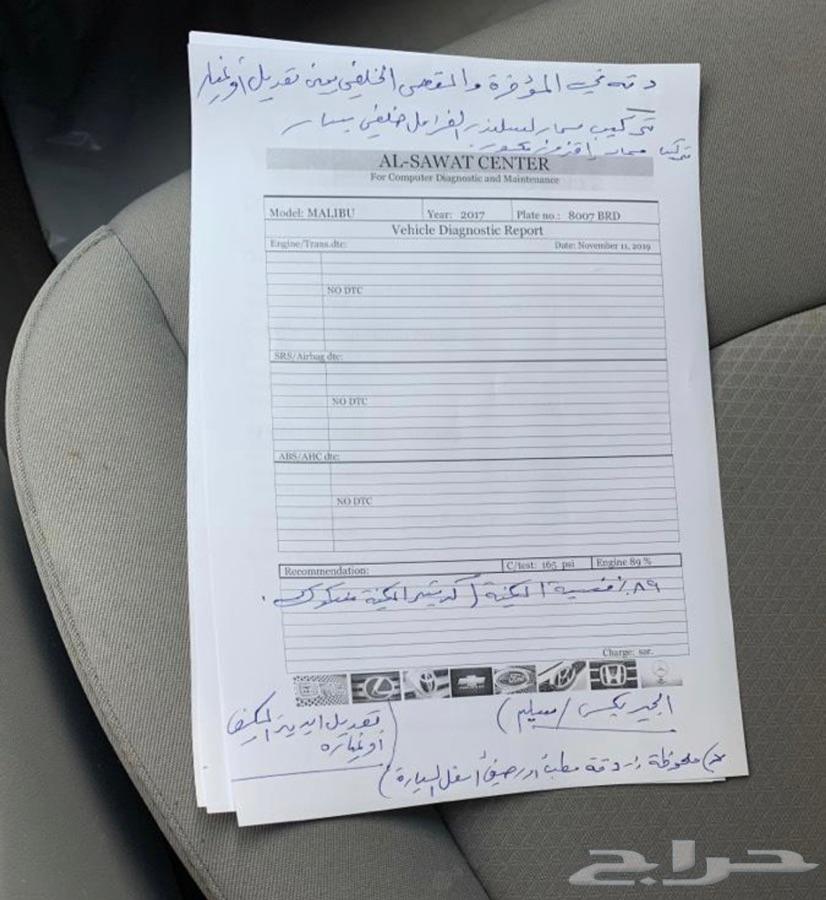 دقه في المؤخرة والمقص الخلفي يمين تعديل أو غيار
تركيب مسمار لسلندر الفرامل خلفي يسار
تركيب مسمار
AL-SAWAT CENTER
For Computer Diagnostic and Maintenance
Model: MALIBU Year: 2017 Plate no.: 8007 BRD
Vehicle Diagnostic Report
Engine/Trans.dtc: Date: November 11, 2019
NO DTC
SRS/Airbag dtc:
NO DTC
ABS/AHC dtc:
NO DTC
Recommendation: C/test: 165 psi Engine 89 %
٨٩٪ نفسية المكينة (كرتير المكينة مفكوك.
Charge: sar.
Ford
الجيربكس / سليم)
تعديل المكيف
أو غياره
ملاحظة :- دقة مطب أو رصيف أسفل السيارة)
حراج